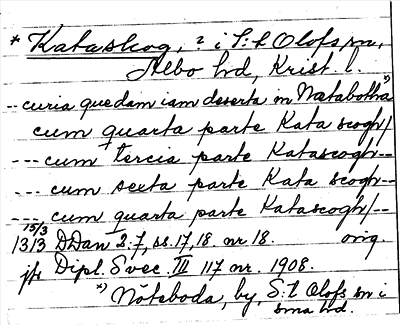 * Kataskog, ? i S:t Olofs sn,
Albo hd, Krist. l.
-- curia quedam iam deserta in Natabotha *)
cum quarta parte Kata scogh/
--- cum tercia parte Katascogh--
--- cum sexta parte Kata scogh--
--- cum quarta parte Katascogh/--
15/3
1313 DDan 2.7, ss. 17, 18. nr. 18. orig.
jfr Dipl. Svec. III 117 nr. 1908.
*) Nöteboda, by, S:t Olofs sn i
sma hd.